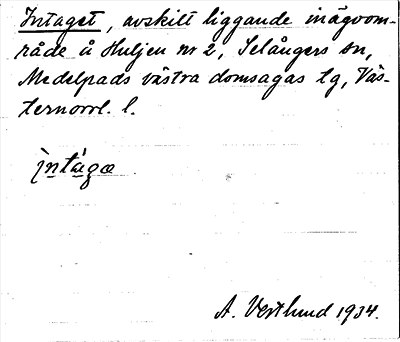 Intaget, avskilt liggande inägoom-
råde å Huljen nr 2, Selångers sn,
Medelpads västra domsagas tg, Väs-
ternorrl. l.
ìntàgæ
A. Vestlund 1934.